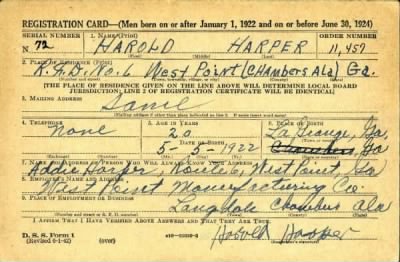 REGISTRATION CARD—(Men born on or after January 1, 1922 and on or before June 30, 1924)
SERIAL NUMBER 1. NAME (Print) ORDER NUMBER
N 72 HAROLD HARPER 11,457
2. PLACE OF RESIDENCE (Print)
R.F.D. No. 6 West Point (Chambers Ala) Ga.
(THE PLACE OF RESIDENCE GIVEN ON THE LINE ABOVE WILL DETERMINE LOCAL BOARD
JURISDICTION; LINE 2 OF REGISTRATION CERTIFICATE WILL BE IDENTICAL)
3. MAILING ADDRESS
Same
(Mailing address if other than place indicated on line 2. If same insert word same)
4. TELEPHONE 5. AGE IN YEARS 6. PLACE OF BIRTH
None 20 La Grange, Ga,
DATE OF BIRTH
5-5-1922 Chambers, Ga
7. NAME AND ADDRESS OF PERSON WHO WILL ALWAYS KNOW YOUR ADDRESS
Addie Harper, Route 6, West Point, Ga
8. EMPLOYER'S NAME AND ADDRESS
West Point Manufacturing Co.
9. PLACE OF EMPLOYMENT OR BUSINESS
Langdale Chambers Ala
(Number and street or R. F. D. number) (Town) (County) (State)
I AFFIRM THAT I HAVE VERIFIED ABOVE ANSWERS AND THAT THEY ARE TRUE.
D. S. S. Form 1
(Revised 6-1-42) (over)
Harold Harper